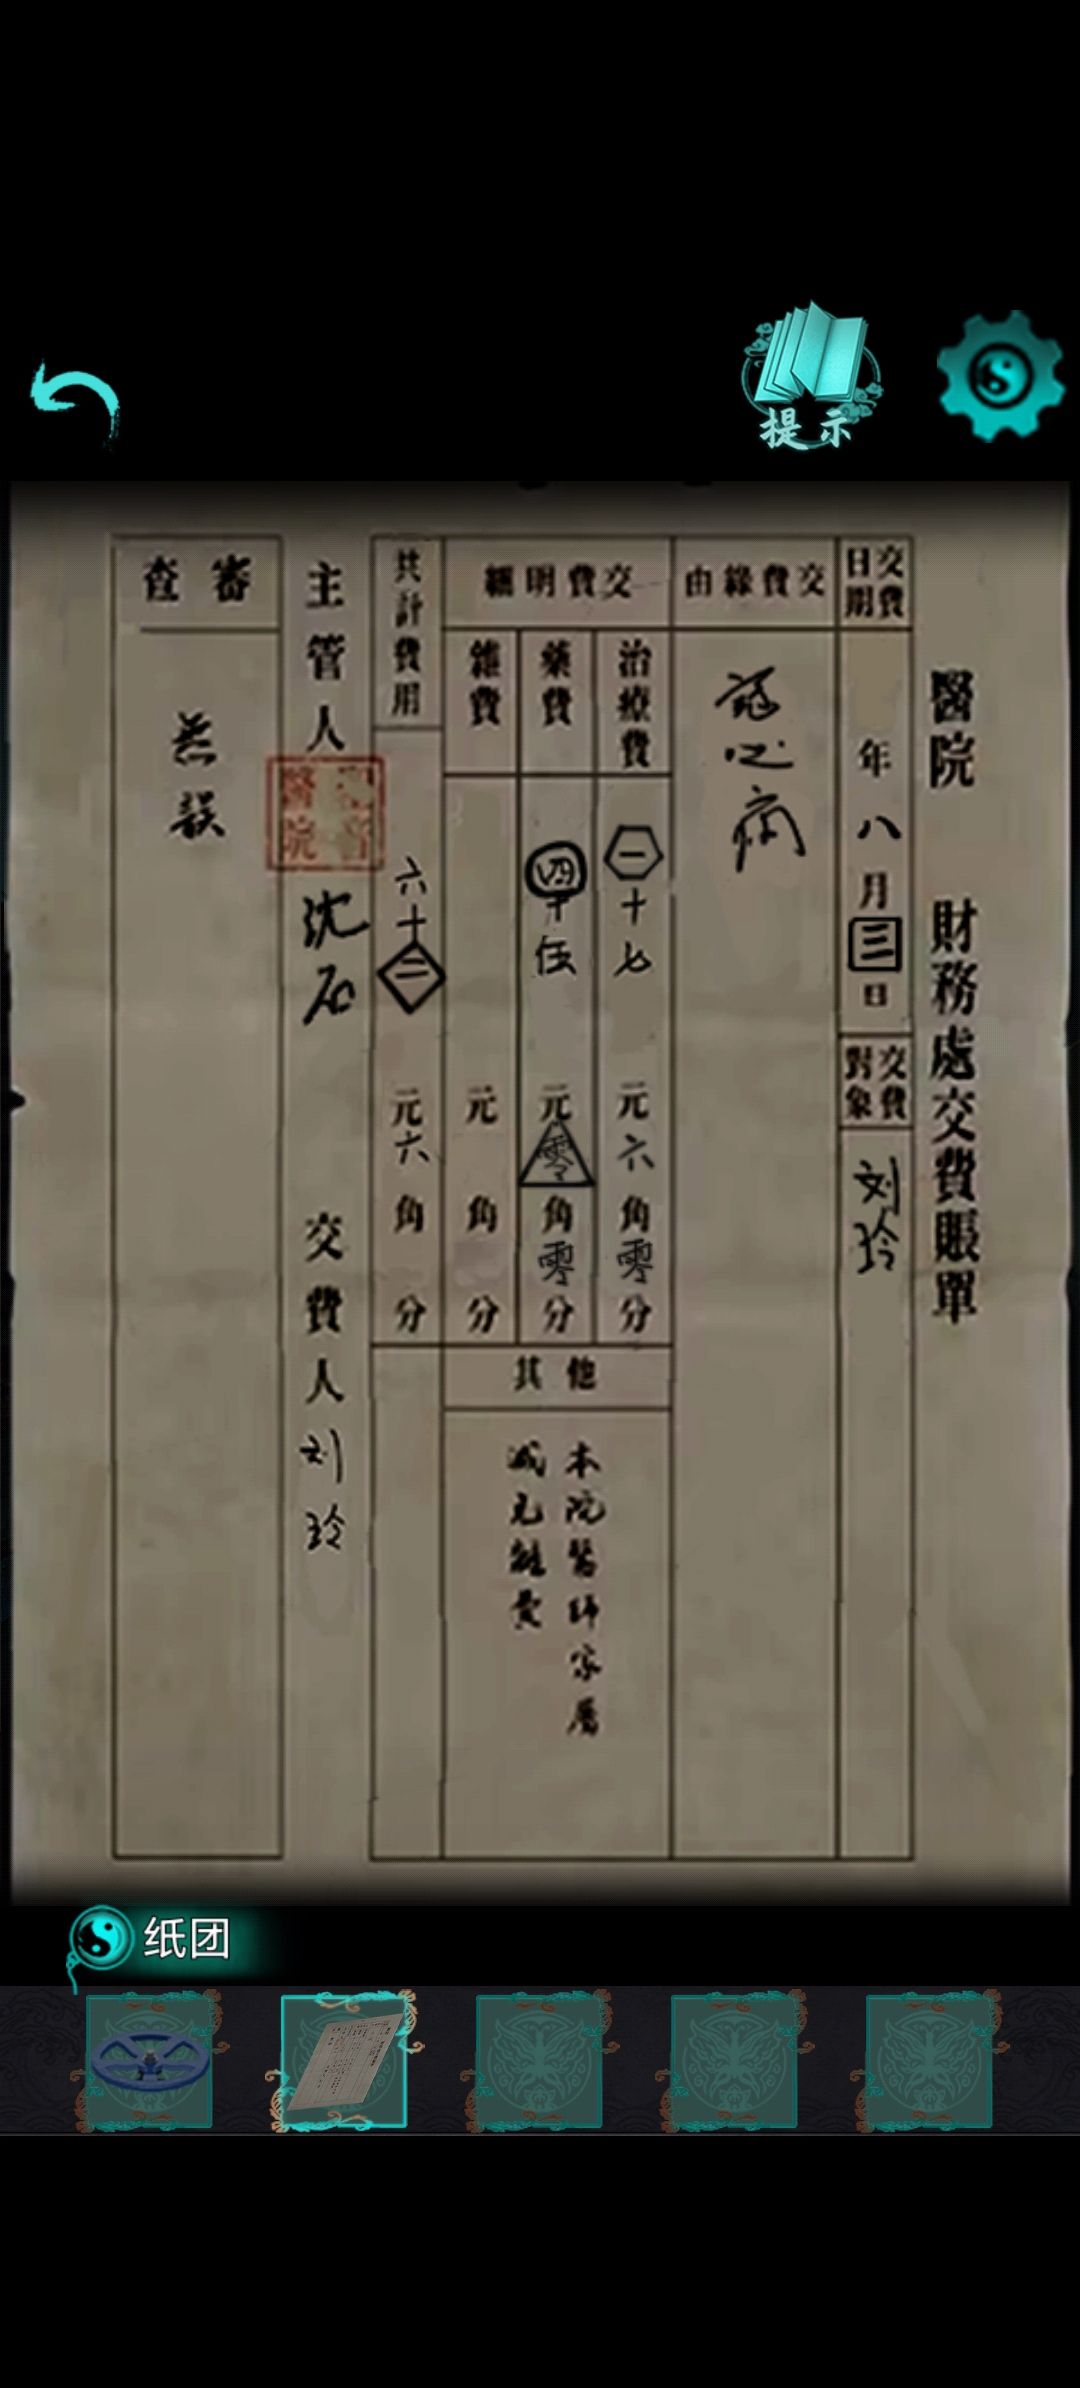 提示
醫院 財務處交費賬單
交費日期
年八月三日
交費對象
刘玲
交費緣由
冠心病
交費明細
治療費
一十七元六角零分
藥費
四十伍元零角零分
雜費
元角分
其他
本院醫師家屬
減免雜費
共計費用
六十二元六角分
主管人 沈石 交費人 刘玲
醫院
審查
無誤
纸团